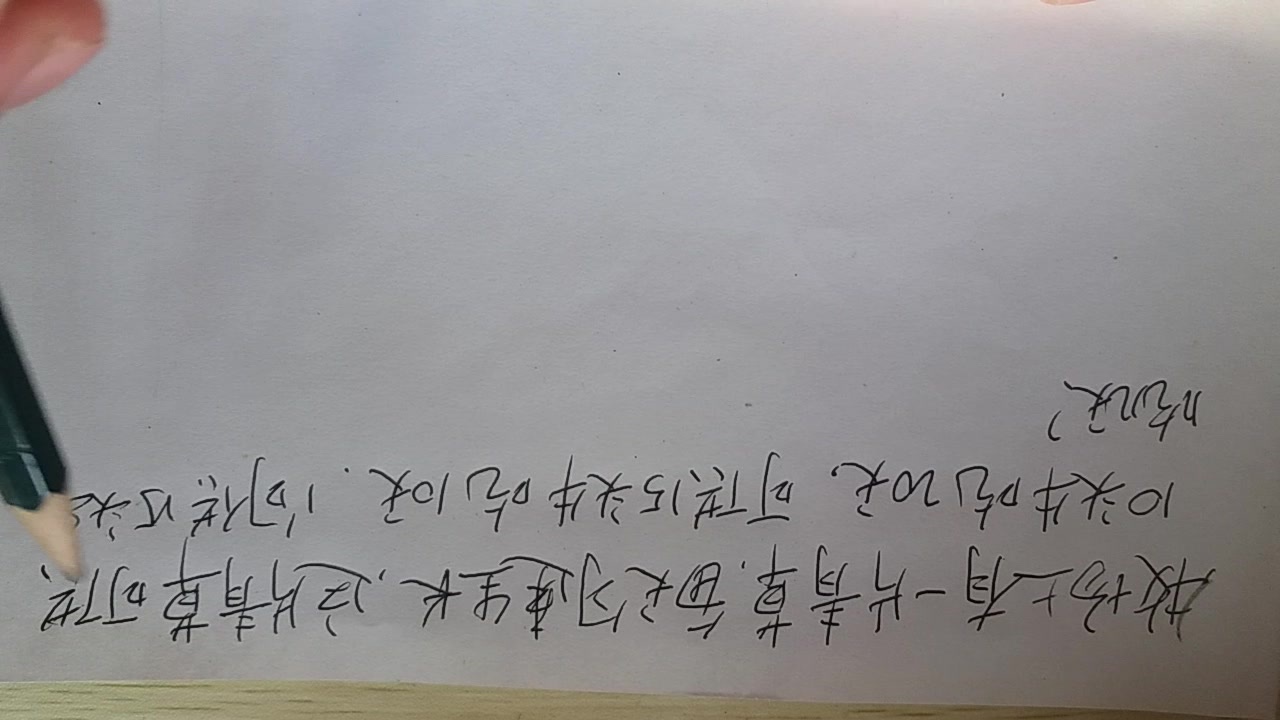 牧场上有一片青草,每天匀速生长,这片青草可供
10头牛吃20天,可供15头牛吃10天.问可供25头牛
吃几天?